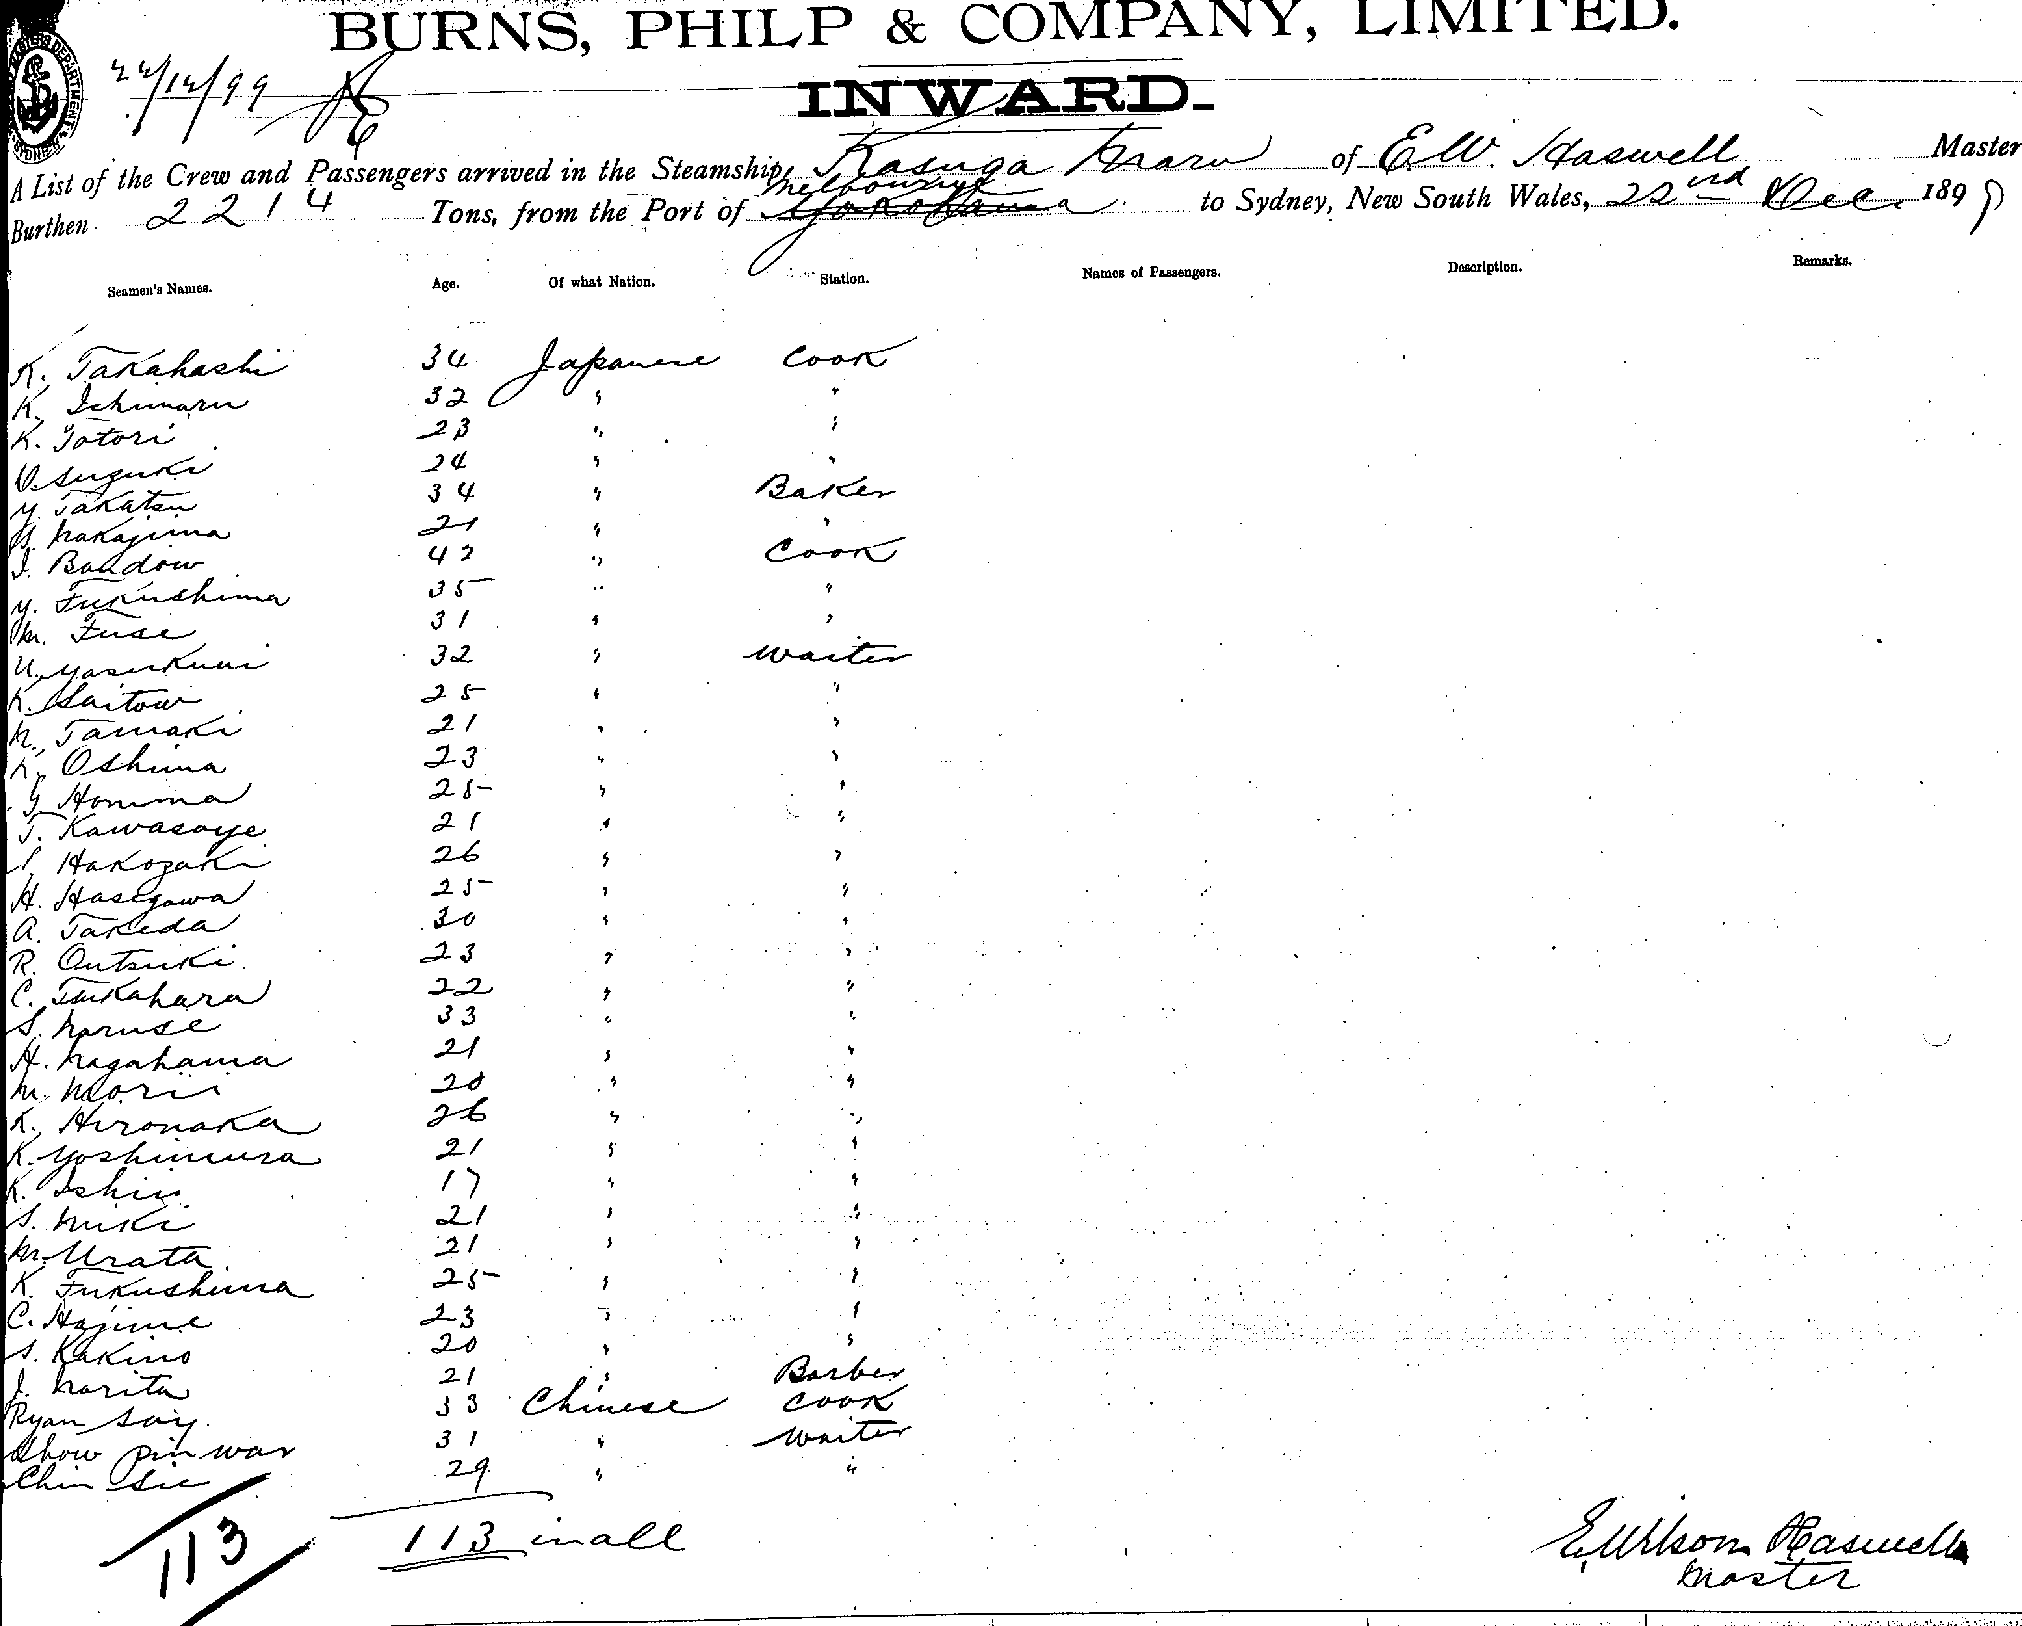 BURNS, PHILP & COMPANY, LIMITED.
INWARD.
22/12/99
A List of the Crew and Passengers arrived in the Steamship, Kasuga Maru of E.W. Haswell Master
Burthen 2214 Tons, from the Port of Melbourne Yokohama to Sydney, New South Wales, 22nd Dec. 1899
Seamen's Names. Age. Of what Nation. Station. Names of Passengers. Description. Remarks.
K. Takahashi 34 Japanese Cook
K. Ichimaru 32 " "
K. Totori 23 " "
O. Suzuki 24 " "
Y. Takatsu 34 " Baker
Nakajima 21 " "
I. Bandow 42 " Cook
Y. Fukushima 35 " "
M. Fuse 31 " "
U. Yasukuni 32 " Waiter
K. Saitow 25 " "
N. Tamaki 21 " "
K. Oshima 23 " "
G Homma 25 " "
T. Kawasoye 21 " "
S. Hakozaki 26 " "
H. Hasegawa 25 " "
A. Takeda 30 " "
R. Outsuki 23 " "
C. Tsukahara 22 " "
S. Naruse 33 " "
H. Nagahama 21 " "
M. Morii 20 " "
K. Hironaka 26 " "
K. Yoshimura 21 " "
K. Ishii 17 " "
S. Miki 21 " "
M. Urata 21 " "
K. Fukushima 25 " "
C. Hajime 23 " "
S. Kakino 20 " "
J. Narita 21 " Barber
Ryan Soy 33 Chinese Cook
Show pin war 31 " Waiter
Chin Sie 29 " "
113
113 in all
E. Wilson Haswell
Master